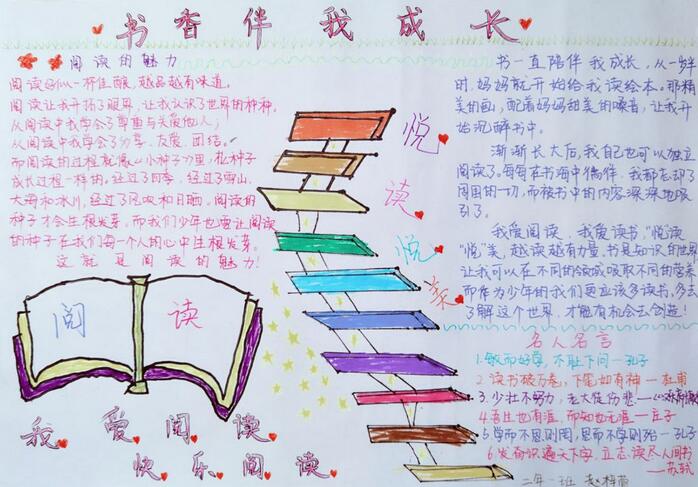 书香伴我成长
阅读的魅力
阅读好似一杯佳酿，越品越有味道。
阅读让我开拓了眼界，让我认识了世界的种种。
从阅读中我学会了尊重与关爱他人；
从阅读中我学会了分享、友爱、团结。
而阅读的过程就像《小种子》里，
成长过程一样的。经过了四季、经过了雪山、
大海和冰川，经过了风吹和日晒。阅读的
种子才会生根发芽。而我们少年也要让阅读
的种子在我们每一个人的心中生根发芽。
这就是阅读的魅力！
阅 读
我爱阅读
快乐阅读
悦
读
悦
美
书一直陪伴我成长，从一岁半
时，妈妈就开始给我读绘本。那精
美的画，配着妈妈甜美的嗓音，让我开
始沉醉书中。
渐渐长大后，我自己也可以独立
阅读了。每每在书海中徜徉，我都忘却了
周围的一切，而被书中的内容深深地吸
引了。
我爱阅读，我爱读书，“悦读
“悦”美，越读越有力量，书是知识的世界
让我可以在不同的领域吸取不同的营养
而作为少年的我们更应该多读书，多去
了解这个世界，才能有机会去创造！
名人名言
1.敏而好学，不耻下问—孔子
2.读书破万卷，下笔如有神—杜甫
3.少壮不努力，老大徒伤悲—
4.吾生也有涯，而知也无涯—庄子
5.学而不思则罔，思而不学则殆—孔子
6.发奋识遍天下字，立志读尽人间书
—苏轼
二年一班